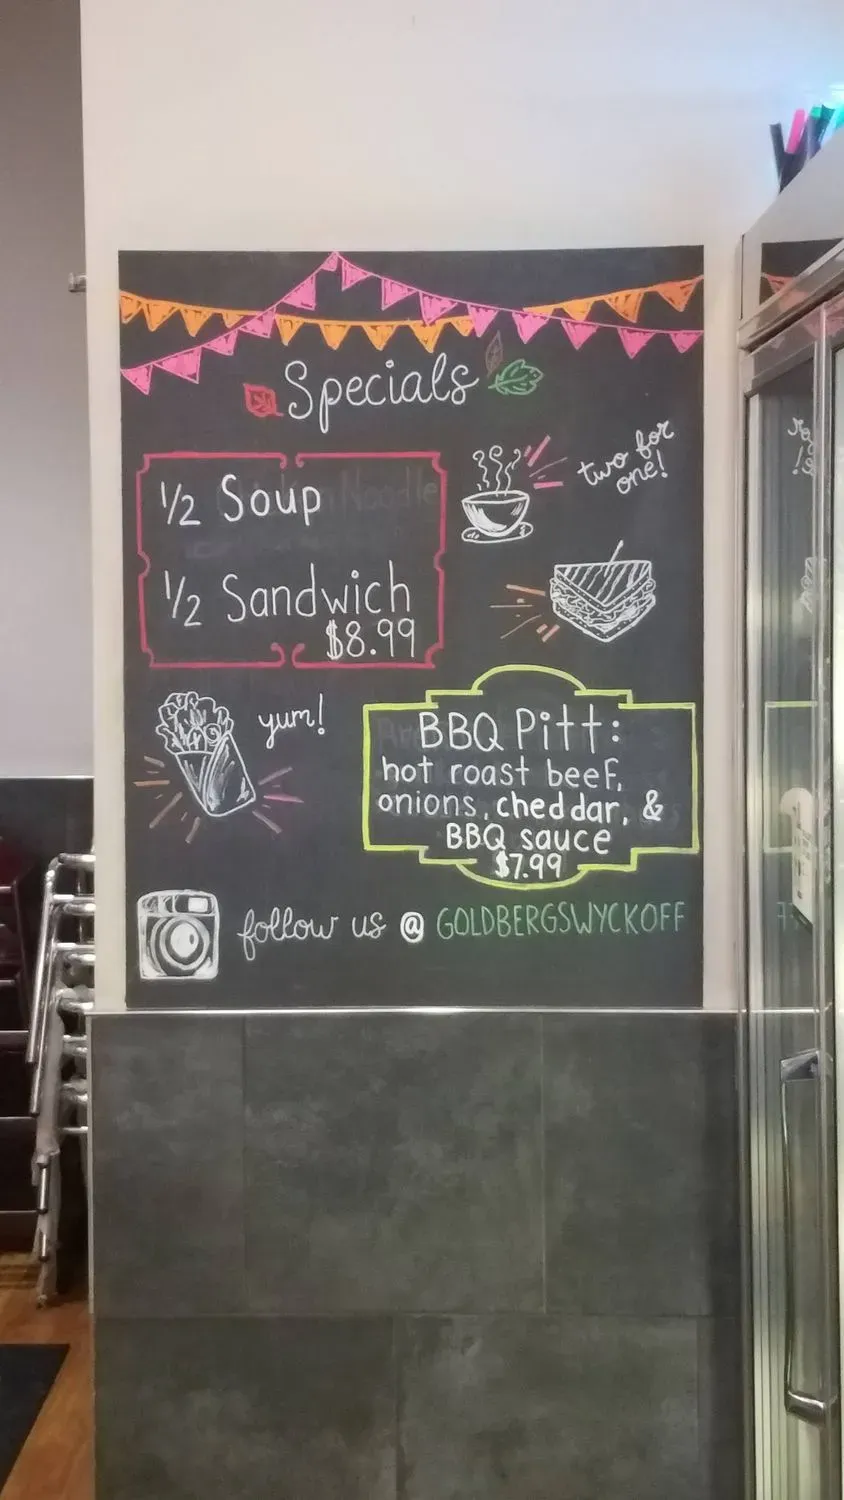 Specials
1/2 Soup
two for
one!
1/2 Sandwich
$8.99
yum!
BBQ Pitt:
hot roast beef,
onions, cheddar, &
BBQ sauce
$7.99
follow us @ GOLDBERGSWYCKOFF